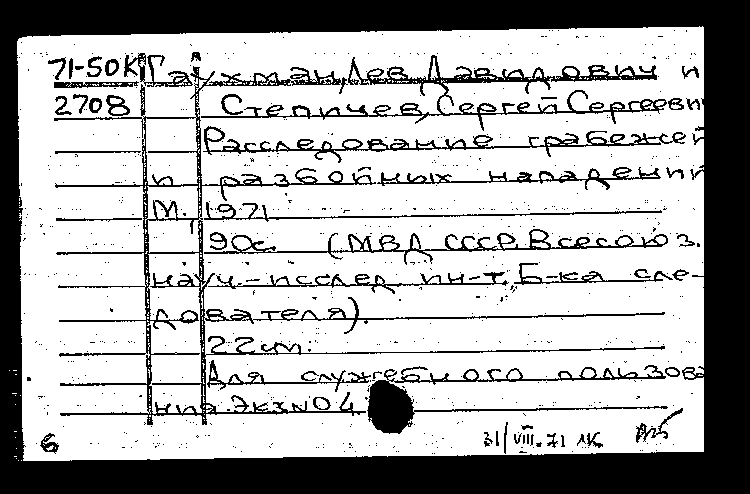 71-50К Гаухман, Лев Давидович и
2708 Степичев, Сергей Сергеевич
Расследование грабежей
и разбойных нападений
М., 1971
90с. (МВД СССР, Всесоюз.
науч.-исслед. ин-т, Б-ка сле-
дователя).
22см.
Для служебного пользова
ния. Экз №04
6 31/VIII-71 ЛК